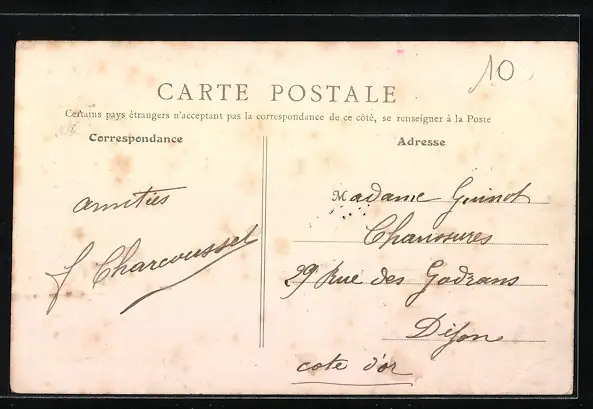 10
CARTE POSTALE
Certains pays étrangers n'acceptant pas la correspondance de ce côté, se renseigner à la Poste
Correspondance
amitiés
J Charcousset
Adresse
Madame Guinot
Chaussures
29 Rue des Godrans
Dijon
cote d'or